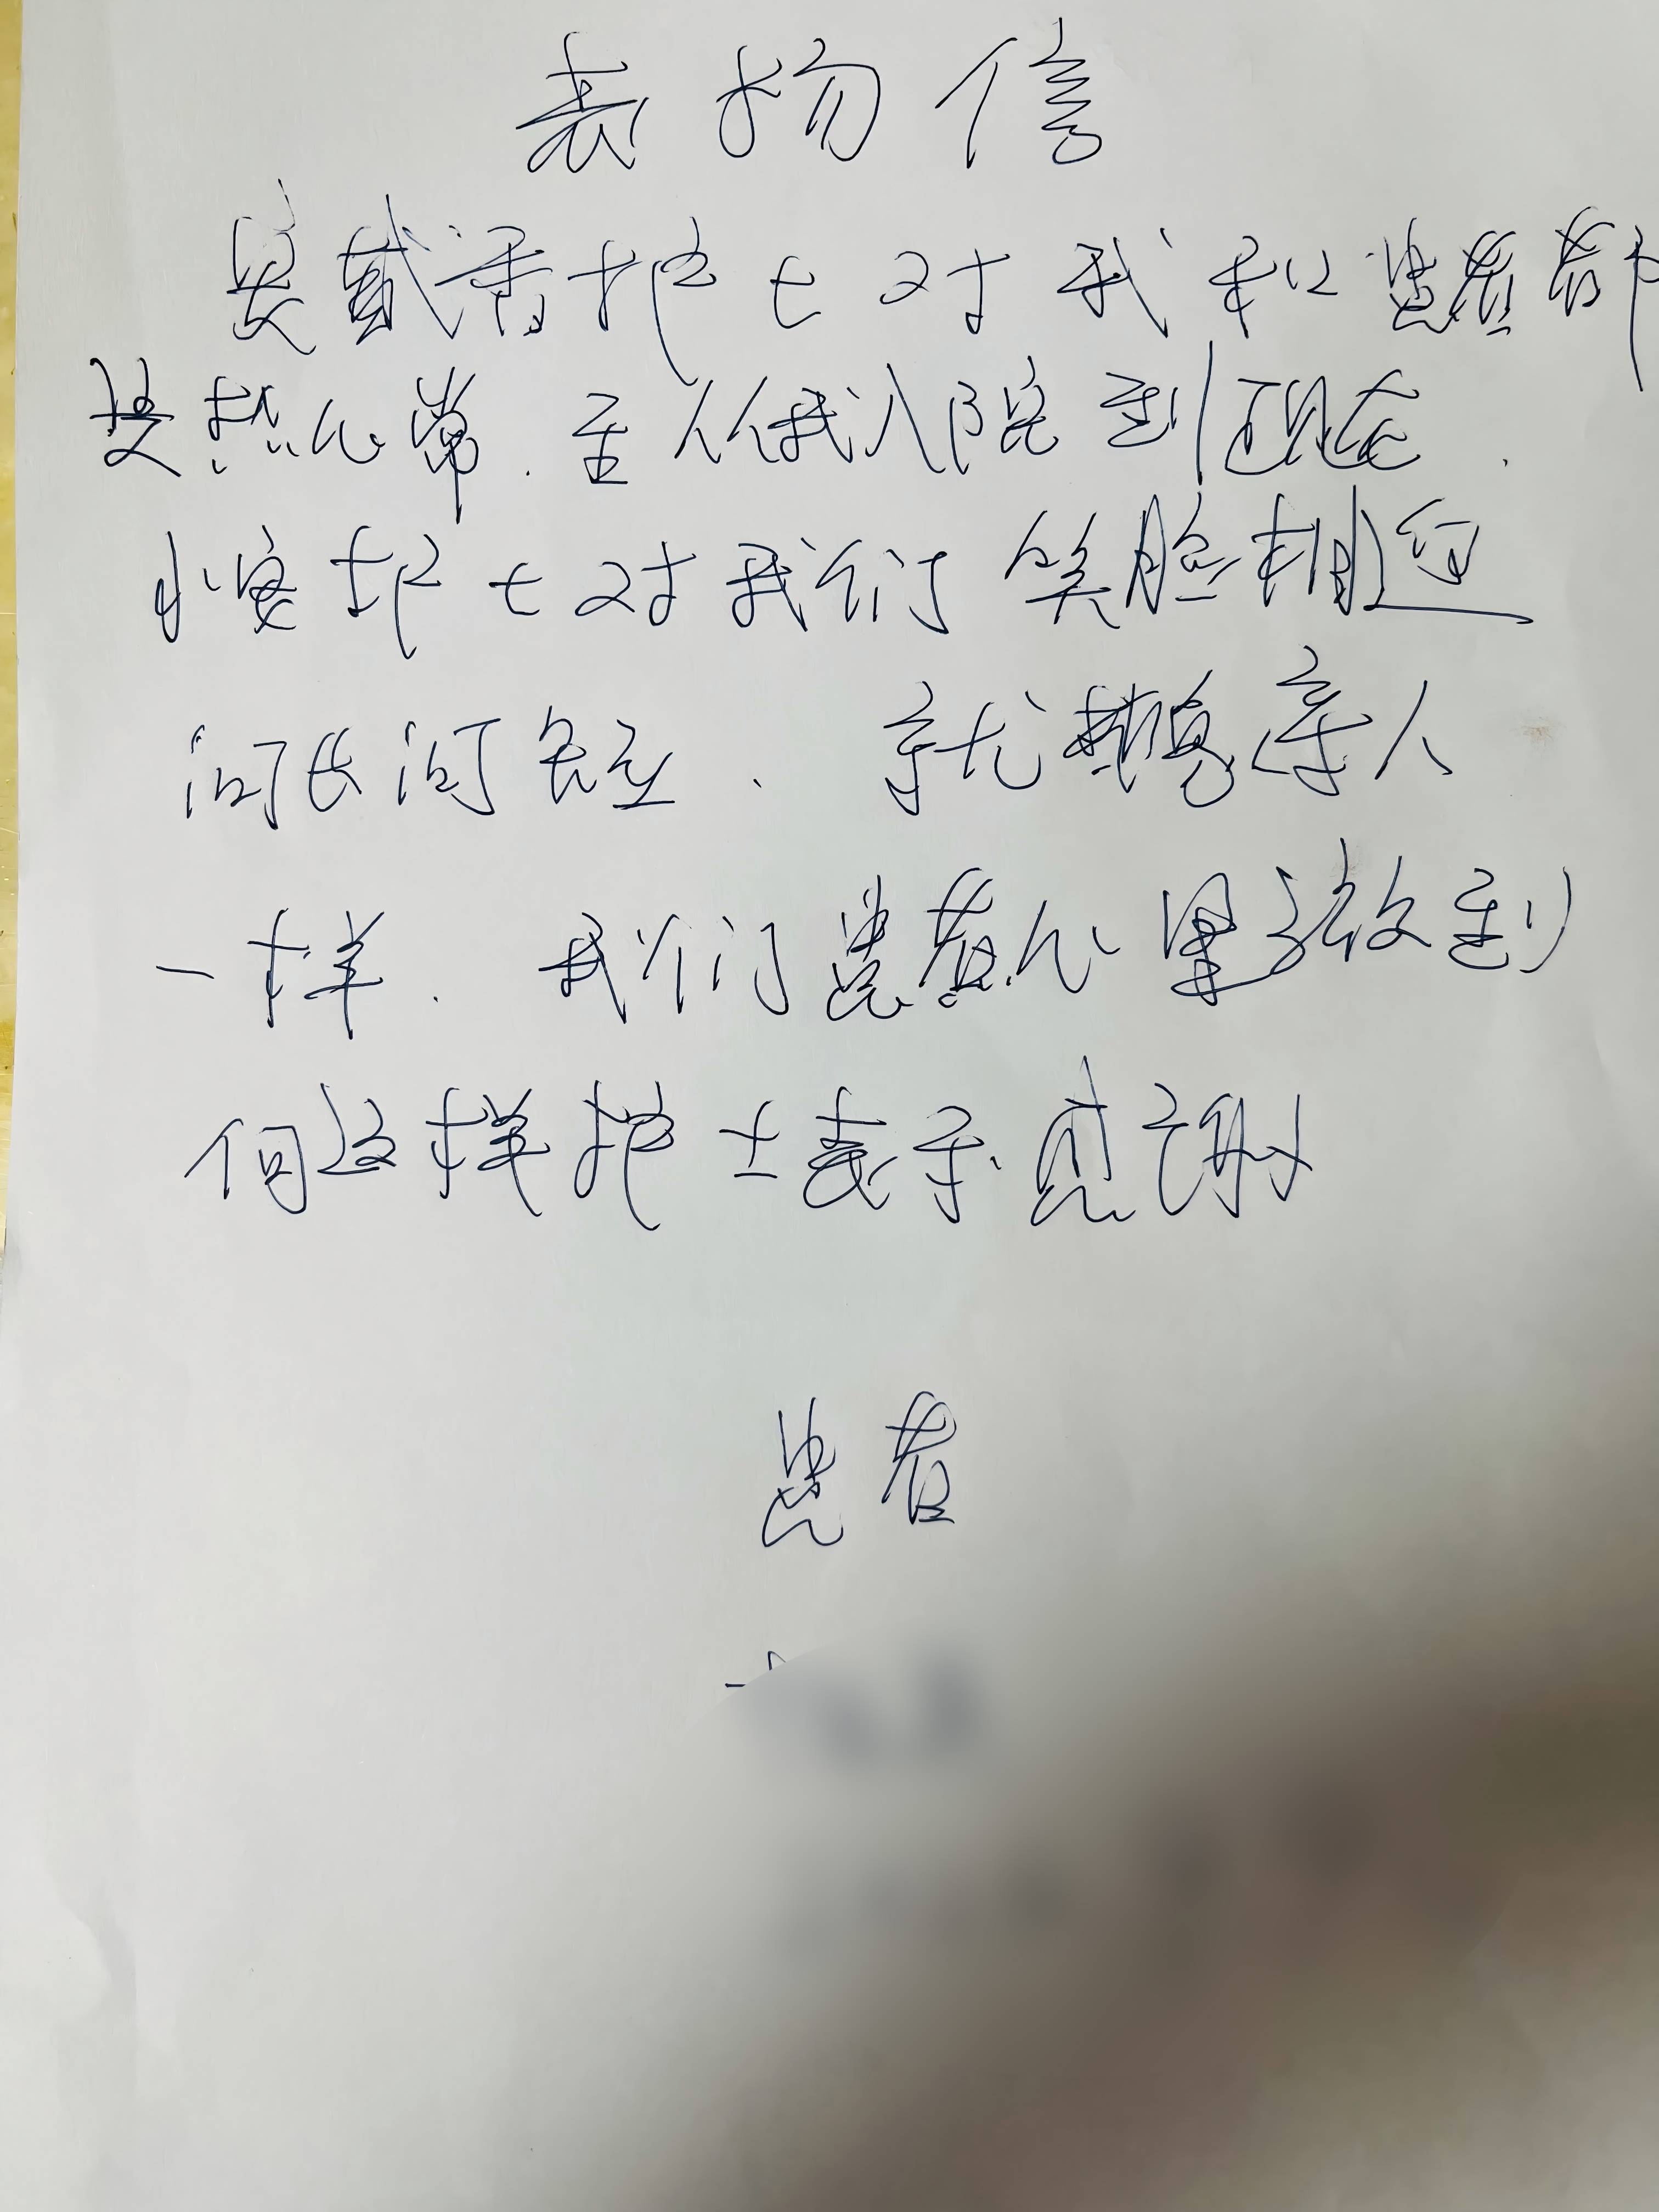 表扬信
护士对我和患者都
热心常.至从我入院到现在.
小安护士对我们笑脸相迎
问长问短、就像亲人
一样.我们患者心里放到
向这样护士表示感谢
患者